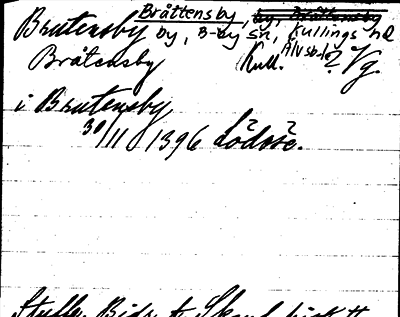 Brutensby Bråttensby, by, Bråttensby
by, B-by sn, Kullings hd
Bråtensby Kull. Älvsb.l. ? Vg.
i Brutensby
30/11 1396 Lödose.
Styffe, Bidr. t. Skand. hist. II